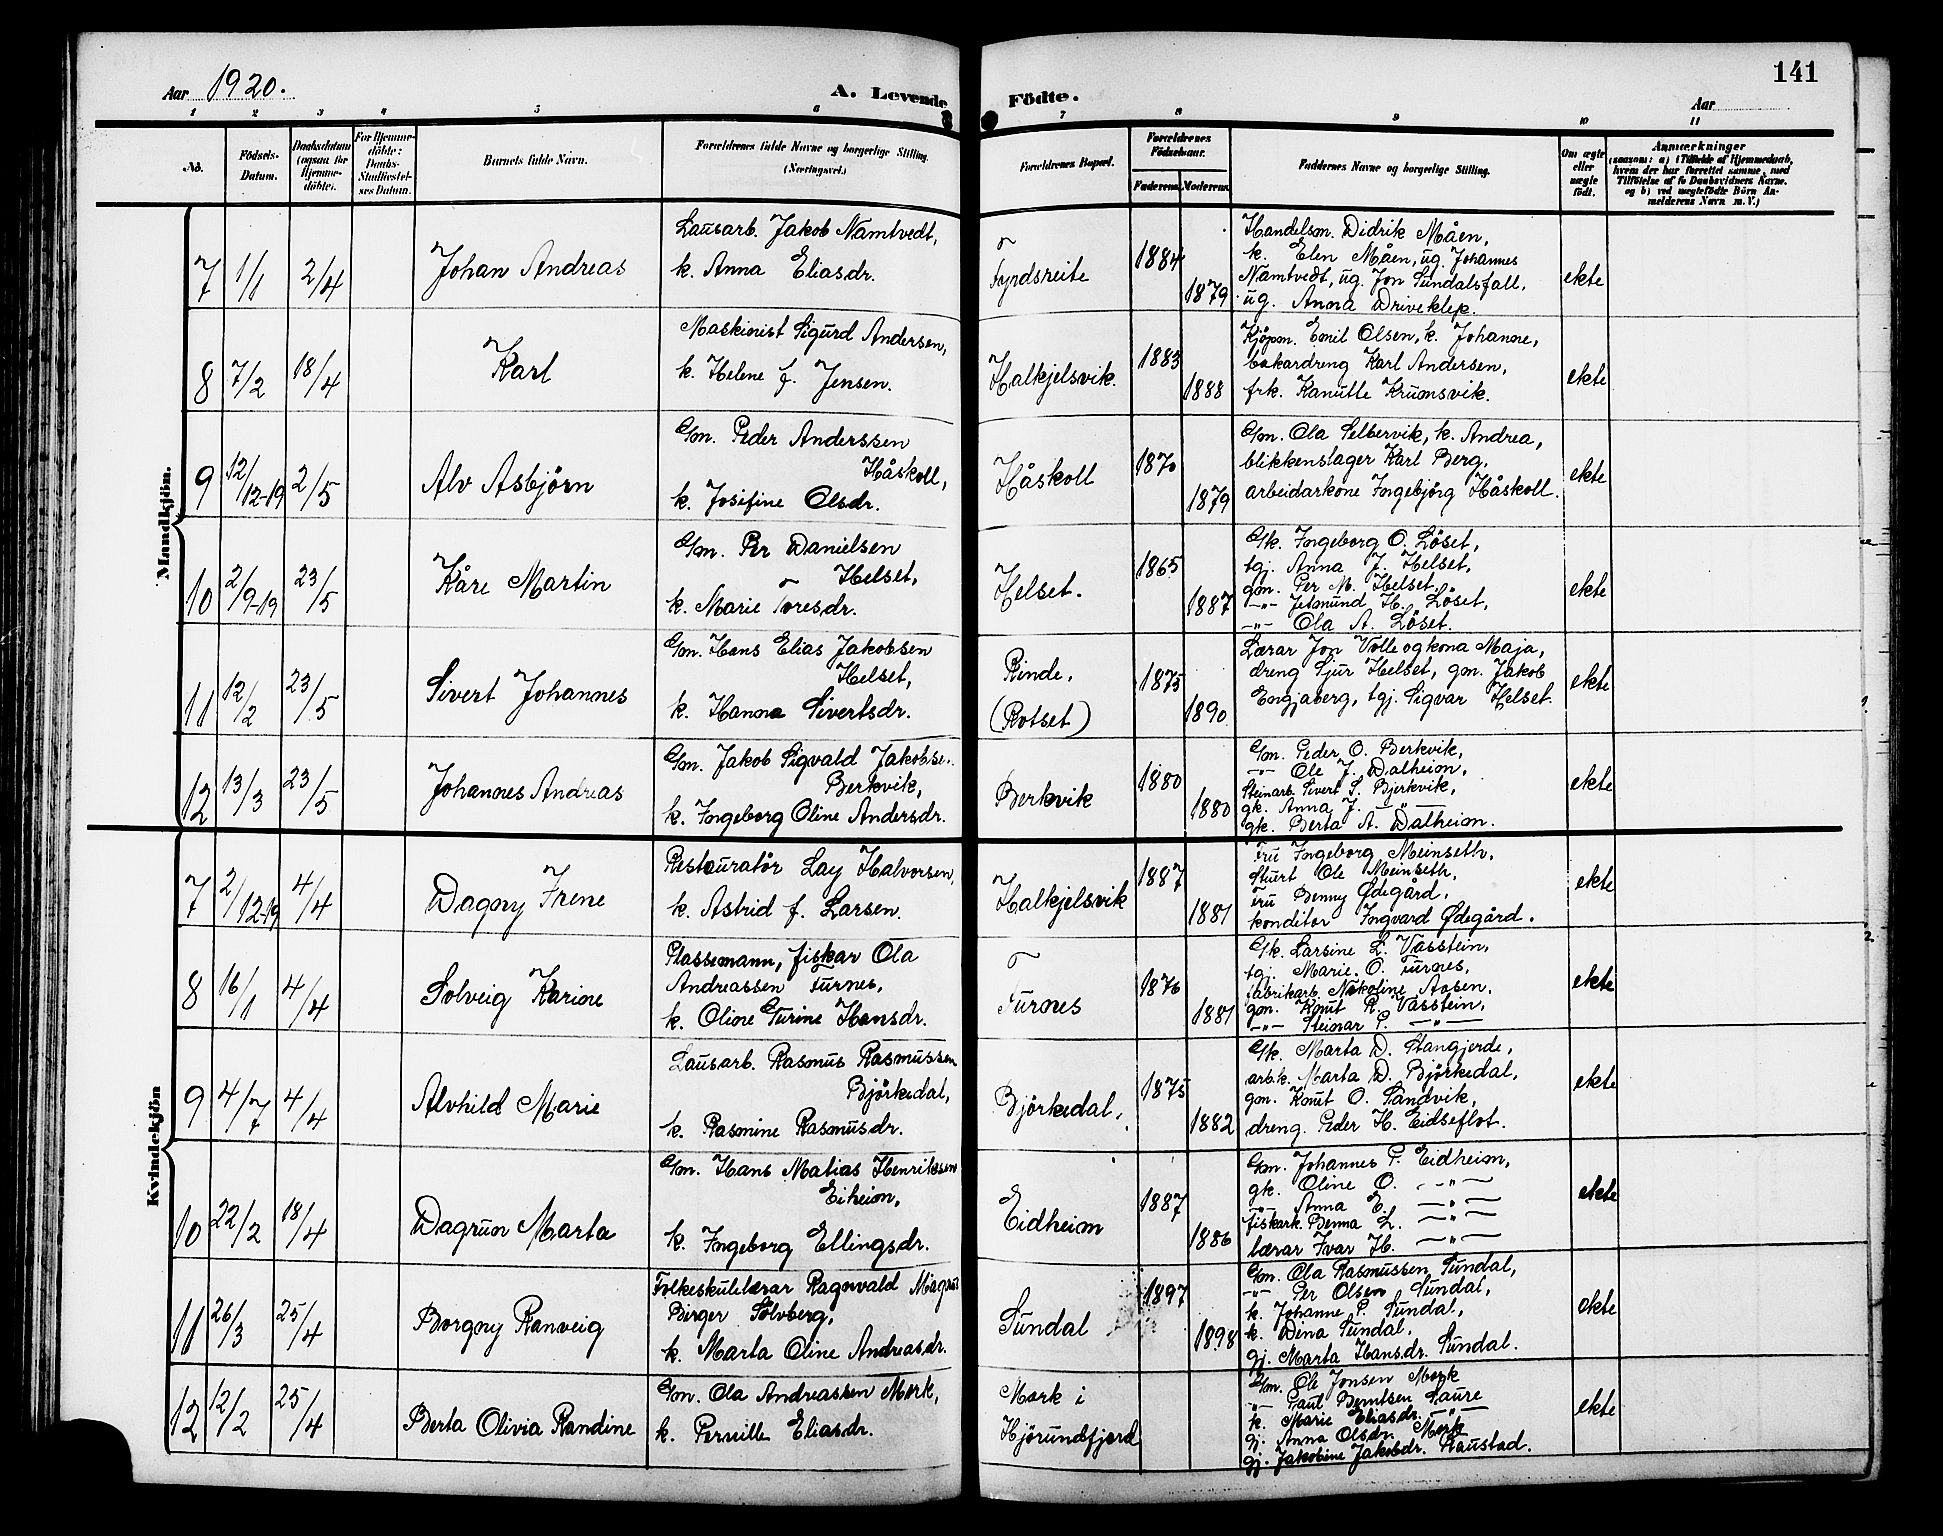 141
Aar 1920.
A. Levende Födte.
Aar
1 2 3 4 5 6 7 8 9 10 11
No.
Födsels-Datum.
Daabsdatum (ogsaa for Hjemme-döbte).
For Hjemme-döbte: Daabs-Stadfæstel-ses Datum.
Barnets fulde Navn.
Forældrenes fulde Navne og borgerlige Stilling. (Næringsvei.)
Forældrenes Bopæl.
Forældrenes Födselsaar.
Faderens. Moderens.
Faddernes Navne og borgerlige Stilling.
Om ægte eller uægte födt.
Anmærkninger
(saasom: a) i Tilfælde af Hjemmedaab,
hvem der har forrettet samme, med
Tilföielse af to Daabsvidners Navne.
og b) ved uægtefödte Börn An-
melderens Navn m. V.)
Mandkjön.
7 1/1 2/4 Johan Andreas
Lausarb. Jakob Namtvedt,
k. Anna Eliasdr.
Fyrdsreite 1884 1879
Handelsm. Didrik Måen,
k. Elen Måen, ug. Johannes
Namtvedt, ug. Jon Sundalsfall,
ug. Anna Driveklep.
ekte
8 7/2 18/4 Karl
Maskinist Sigurd Andersen,
k. Helene f. Jensen.
Halkjelsvik. 1883 1888
Kjöpm. Emil Olsen, k. Johanne,
bakardreng Karl Andersen,
frk. Kanutte Krumsvik.
ekte
9 12/12-19 2/5 Alv Asbjörn
Gm. Peder Anderssen
Håskoll,
k. Josefine Olsdr.
Håskoll 1870 1879
Gm. Ola Selbervik, k. Andrea,
blikkenslager Karl Berg,
arbeidarkone Ingebjörg Håskoll.
ekte
10 2/9-19 23/5 Kåre Martin
Gm. Per Danielsen
Helset,
k. Marie Toresdr.
Helset. 1865 1887
Gk. Ingeborg O. Löset,
tgj. Anna J. Helset,
gm. Per M. Helset,
-"- Jetmund H. Löset,
-"- Ola A. Löset.
ekte
11 12/2 23/5 Sivert Johannes
Gm. Hans Elias Jakobsen
Helset,
k. Hanna Sivertsdr.
Rinde,
(Rotset) 1875 1890
Lærar Jon Volle og kona Maja,
dreng Sjur Helset, gm. Jakob
Engjaberg, tgj. Sigvar Helset.
ekte
12 13/3 23/5 Johannes Andreas
Gm. Jakob Sigvald Jakobse..
Berkvik,
k. Ingeborg Oline Andersdr.
Berkvik 1880 1880
Gm. Peder O. Berkvik,
-"- Ole J. Dalheim,
Steinarb. Sivert S. Bjerkvik,
gk. Anna J. -"-
gk. Berta A. Dalheim.
ekte
Kvindekjön
7 2/12-19 4/4 Dagny Irene
Restauratör Lay Halvorsen,
k. Astrid f. Larsen.
Halkjelsvik 1887 1881
Fru Ingeborg Meinseth,
Sturt Ole Meinseth,
Fru Benny Ødegård,
konditor Ingvard Ødegård.
ekte
8 16/1 4/4 Solveig Karine
Plassemann, fiskar Ola
Andreassen Furnes,
k. Oline Turine Hansdr.
Furnes 1876 1881
Gk. Larsine L. Vasstein,
tgj. Marie. O. Furnes,
fabrikarb. Nikoline Aasen,
gm. Knut R. Vasstein,
-"- Steinar P. -"-
ekte
9 4/7 4/4 Alvhild Marie
Lausarb. Rasmus Rasmussen
Björkedal,
k. Rasmine Rasmusdr.
Björkedal, 1875 1882
Gk. Marta D. Stangjerde,
arb.k. Marta D. Björkedal,
gm. Knut O. Sandvik,
dreng. Peder H. Eidseflot.
ekte
10 22/2 18/4 Dagrun Marta
Gm. Hans Matias Henriksen
Eiheim,
k. Ingeborg Ellingsdr.
Eidheim 1887 1886
Gm. Johannes P. Eidheim,
gk. Oline O. -"-
-"- Anna E. -"-
fiskark. Benna L. -"-
lærar Ivar H. -"-
ekte
11 26/3 25/4 Borgny Ranveig
Folkeskulelærar Ragnvald Magnus
Birger Sölvberg,
k. Marta Oline Andreasdr.
Sundal 1897 1898
Gm. Ola Rasmussen Sundal,
-"- Per Olsen Sundal,
k. Johanne P. Sundal,
k. Dina Sundal,
gj. Marta Hansdr. Sundal.
ekte
12 12/2 25/4 Berta Olivia Randine
Gm. Ola Andreassen Mork,
k. Pernille Eliasdr.
Mork i
Hjörundfjord
Gm. Ole Jonsen Mork
-"- Paul Berntsen Saure
k. Marie Eliasdr. -"-
gj. Anna Olsdr. Mork
gj. Jakobine Jakobdr. Raustad.
ekte